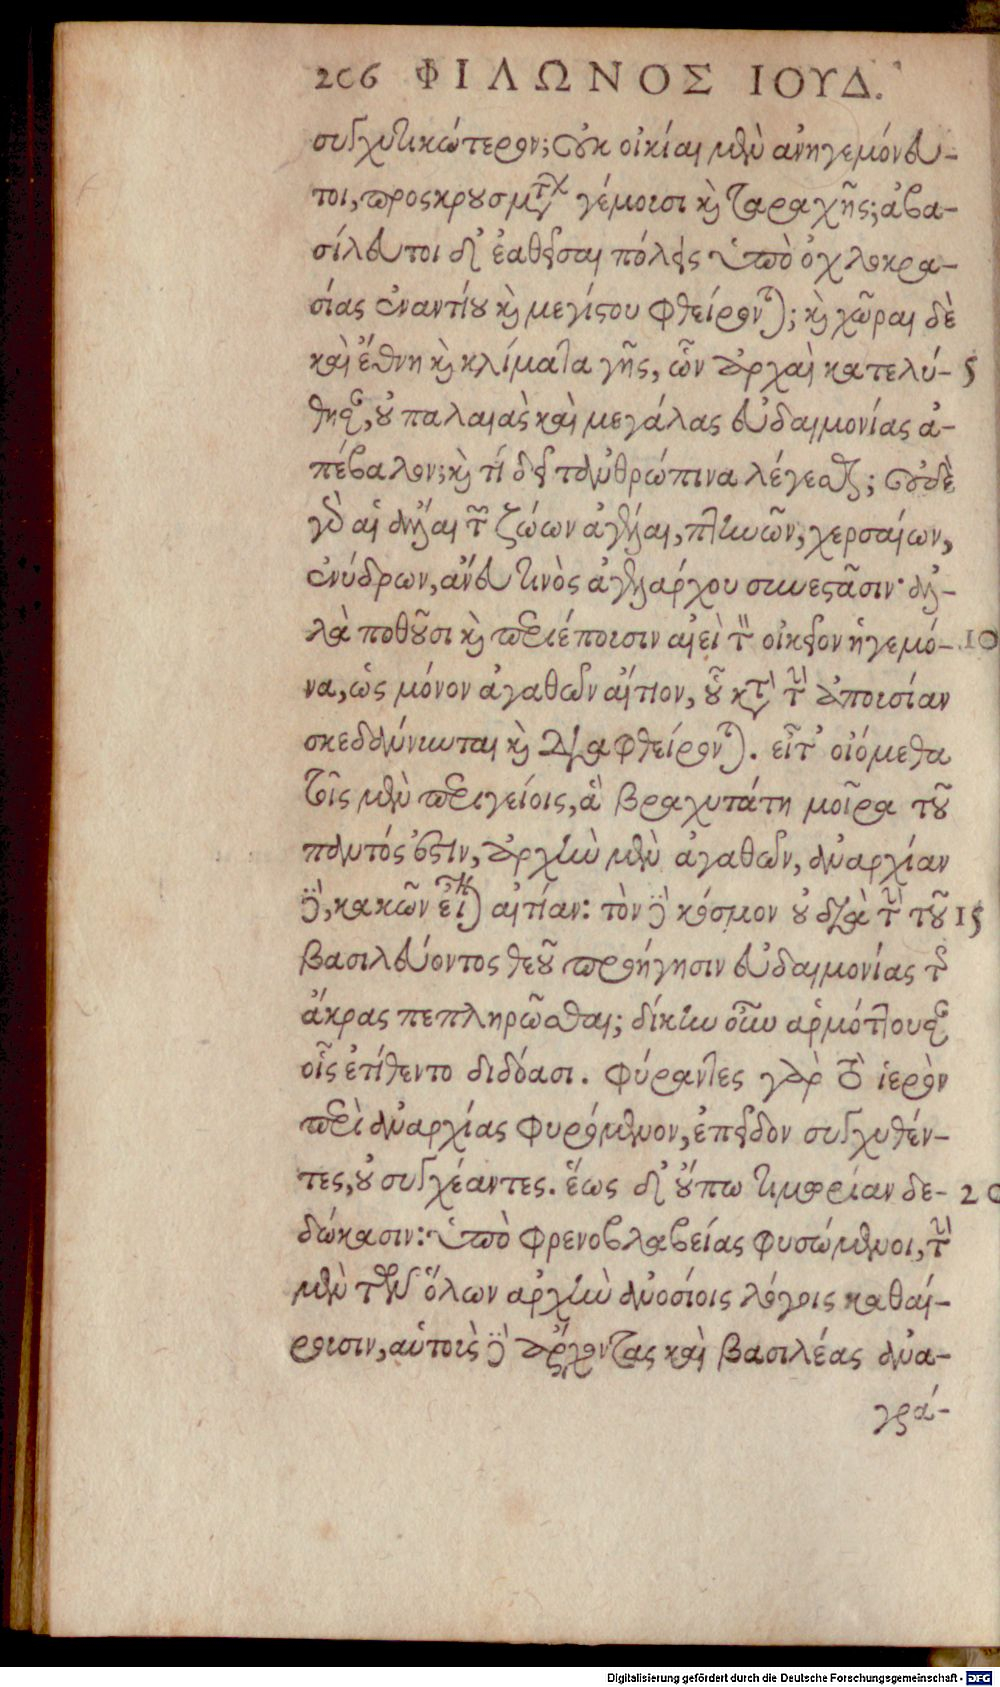 206 ΦΙΛΩΝΟΣ ΙΟΥΔ.
συγχυτικώτερον; Οὐκ οἰκίαι μὲν ἀνηγεμόνευ-
τοι, προσκρουσμάτων γέμουσι καὶ ταραχῆς; ἀβα-
σίλευτοι δ' ἐαθεῖσαι πόλεις ὑπὸ ὀχλοκρα-
σίας ἐναντίου καὶ μεγίστου φθείρονται; καὶ χῶραι δὲ
καὶ ἔθνη καὶ κλίματα γῆς, ὧν ἀρχαὶ κατελύ- 5
θησαν, οὐ παλαιὰς καὶ μεγάλας εὐδαιμονίας ἀ-
πέβαλον; καὶ τί δεῖ τἀνθρώπινα λέγεσθαι; Οὐδὲ
γὰρ αἱ ἄλλαι τῶν ζώων ἀγέλαι, πτηνῶν, χερσαίων,
ἐνύδρων, ἄνευ τινὸς ἀγελάρχου συνεστᾶσιν· ἀλ-
λὰ ποθοῦσι καὶ περιέπουσιν αἰεὶ τὸν οἰκεῖον ἡγεμό- 10
να, ὡς μόνον ἀγαθῶν αἴτιον, οὗ κατὰ τὴν ἀπουσίαν
σκεδάννυνται καὶ διαφθείρονται. εἶτ' οἰόμεθα
τοῖς μὲν περιγείοις, ἃ βραχυτάτη μοῖρα τοῦ
παντός ἐστιν, ἀρχὴν μὲν ἀγαθῶν, ἀναρχίαν
δὲ, κακῶν εἶναι αἰτίαν: τὸν δὲ κόσμον οὐ διὰ τὴν τοῦ 15
βασιλεύοντος θεοῦ προήγησιν εὐδαιμονίας τῆς
ἄκρας πεπληρῶσθαι; δίκην οὖν ἁρμόττουσαν
οἷς ἐτίθεντο διδόασι. φύραντες γὰρ τὸ ἱερὸν
περὶ ἀναρχίας φυρόμενον, ἐπεῖδον συγχυθέν-
τες, οὐ συγχέαντες. ἕως δ' οὔπω τιμωρίαν δε- 20
δώκασιν: ὑπὸ φρενοβλαβείας φυσώμενοι, τὴν
μὲν τῶν ὅλων ἀρχὴν ἀνοσίοις λόγοις καθαί-
ρουσιν, αὑτοὺς δὲ ἄρχοντας καὶ βασιλέας ἀνα-
γρά-
Digitalisierung gefördert durch die Deutsche Forschungsgemeinschaft - DFG